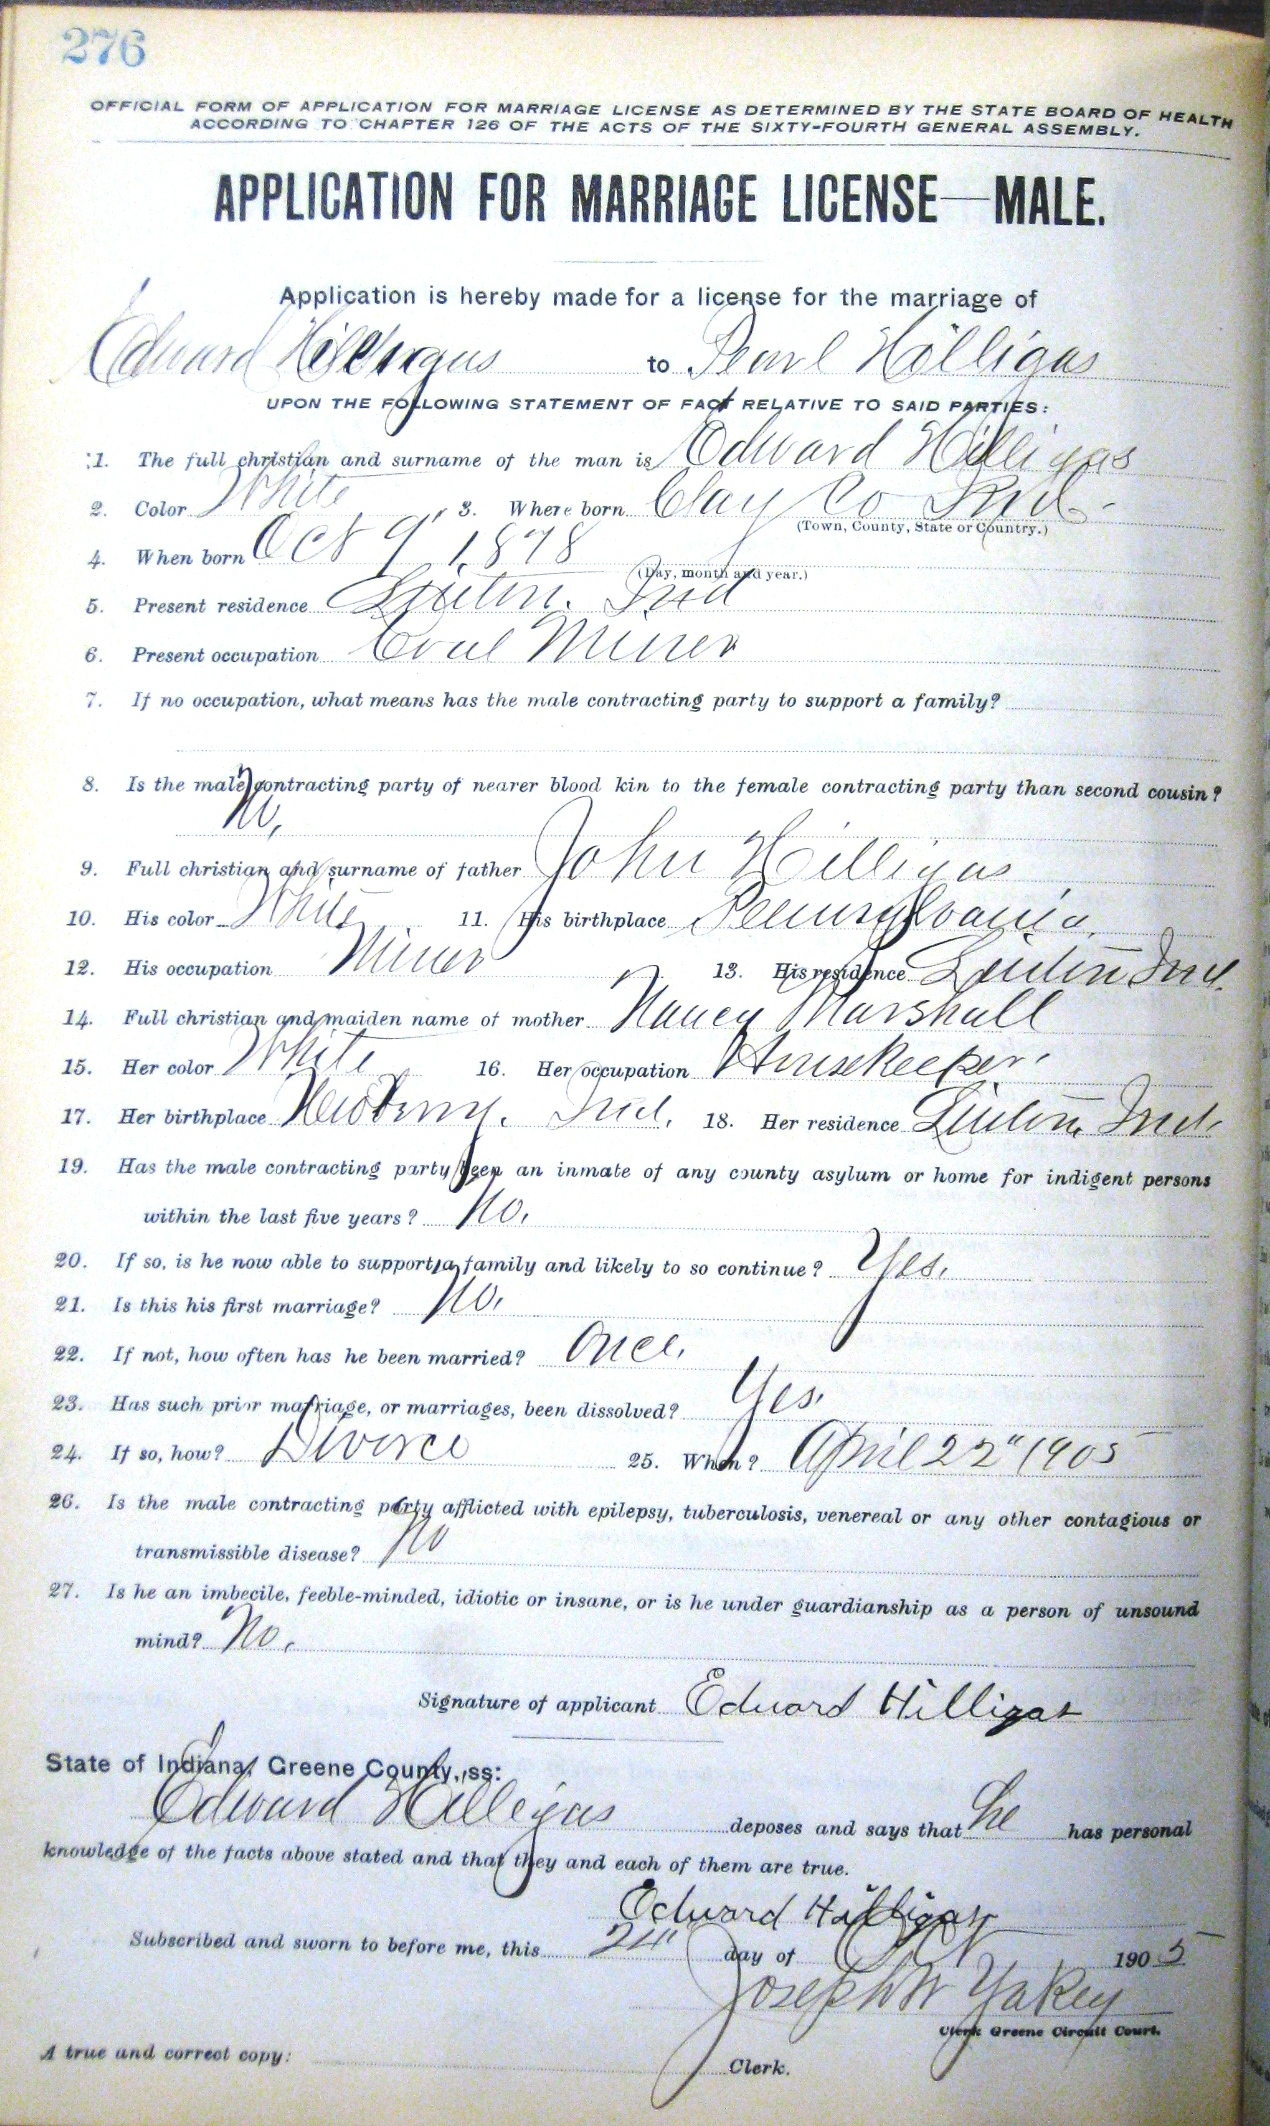 276
OFFICIAL FORM OF APPLICATION FOR MARRIAGE LICENSE AS DETERMINED BY THE STATE BOARD OF HEALTH
ACCORDING TO CHAPTER 126 OF THE ACTS OF THE SIXTY-FOURTH GENERAL ASSEMBLY.
APPLICATION FOR MARRIAGE LICENSE—MALE.
Application is hereby made for a license for the marriage of
Edward Hilligas to Pearl Hilligas
UPON THE FOLLOWING STATEMENT OF FACT RELATIVE TO SAID PARTIES:
1. The full christian and surname of the man is Edward Hilligas
2. Color White 3. Where born Clay Co Ind.
(Town, County, State or Country.)
4. When born Oct 9" 1878
(Day, month and year.)
5. Present residence Linton. Ind
6. Present occupation Coal Miner
7. If no occupation, what means has the male contracting party to support a family?
8. Is the male contracting party of nearer blood kin to the female contracting party than second cousin?
No.
9. Full christian and surname of father John Hilligas
10. His color White 11. His birthplace Pennsylvania.
12. His occupation Miner 13. His residence Linton Ind.
14. Full christian and maiden name of mother Nancy Marshall
15. Her color White 16. Her occupation Housekeeper.
17. Her birthplace Newberry. Ind. 18. Her residence Linton, Ind.
19. Has the male contracting party been an inmate of any county asylum or home for indigent persons
within the last five years? No.
20. If so, is he now able to support a family and likely to so continue? Yes.
21. Is this his first marriage? No.
22. If not, how often has he been married? Once.
23. Has such prior marriage, or marriages, been dissolved? Yes.
24. If so, how? Divorce 25. When? April 22" 1905
26. Is the male contracting party afflicted with epilepsy, tuberculosis, venereal or any other contagious or
transmissible disease? No
27. Is he an imbecile, feeble-minded, idiotic or insane, or is he under guardianship as a person of unsound
mind? No.
Signature of applicant Edward Hilligas
State of Indiana, Greene County, ss:
Edward Hilligas deposes and says that he has personal
knowledge of the facts above stated and that they and each of them are true.
Edward Hilligas
Subscribed and sworn to before me, this 24" day of Oct 1905
Joseph W Yakey
Clerk Greene Circuit Court.
A true and correct copy: Clerk.